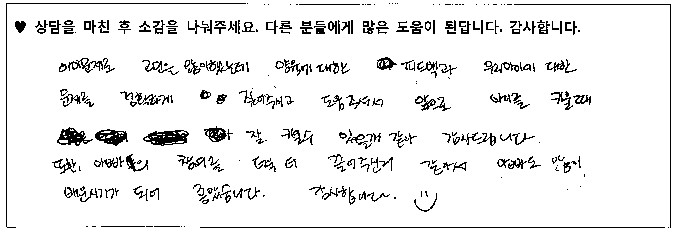 ♥ 상담을 마친 후 소감을 나눠주세요. 다른 분들에게 많은 도움이 된답니다. 감사합니다.
고민은 많이했는데 양육에 대한 피드백과 우리아이에 대한
문제를 정확하게 도움주셔서 앞으로 아이를 키울때
잘 키울수 있을거 같아 감사드립니다.
또한, 아빠의 참여를 더 끌어주신거 같아서 아빠도
배운시기가 되어 좋았습니다. 감사합니다~